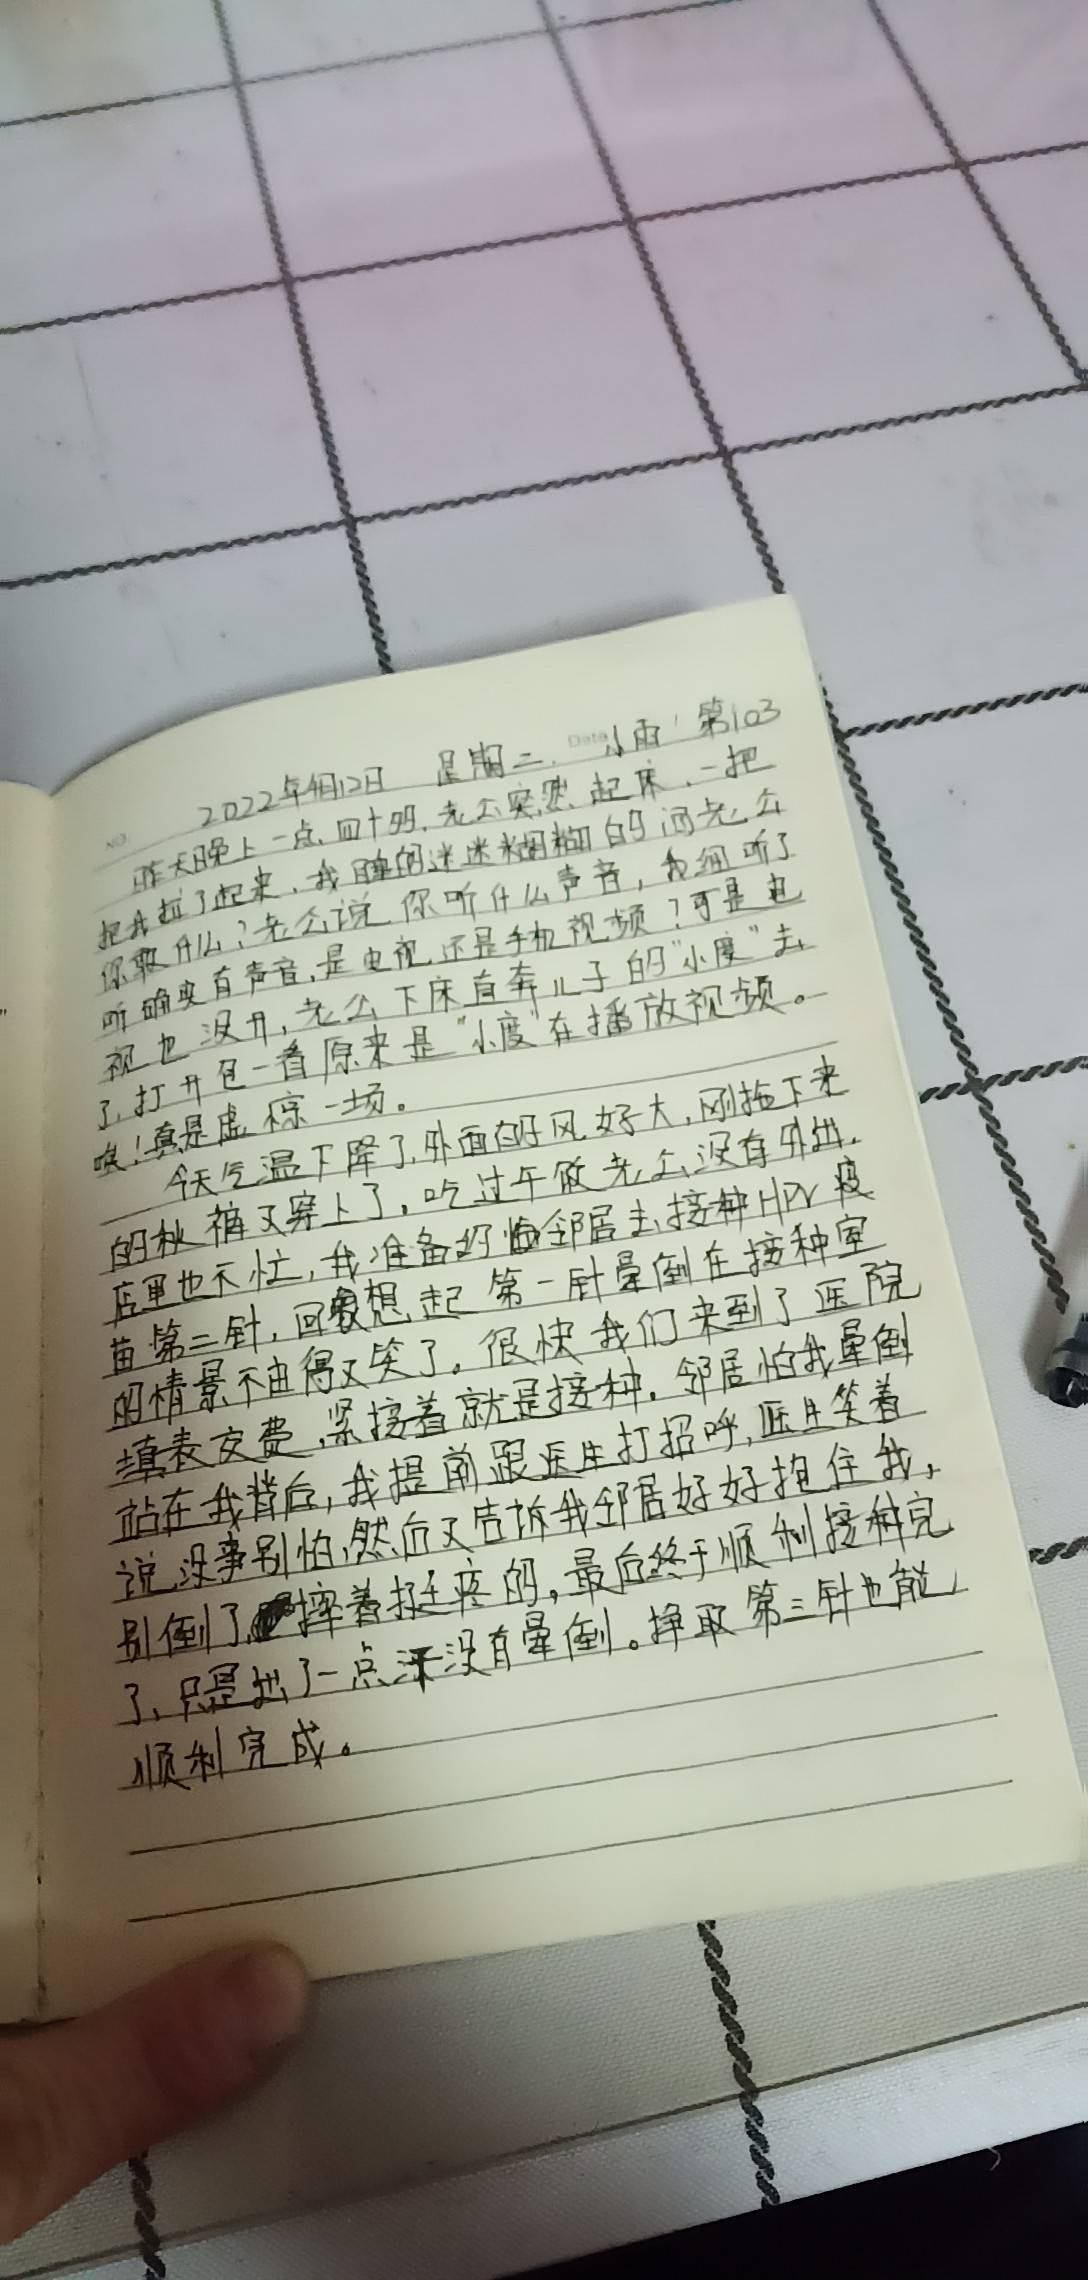 2022年4月12日 星期二. 小雨 第103
NO.
Date
昨天晚上一点四十多,老公突然起床,一把
把我拉了起来,我睡的迷迷糊糊的问老公
你干什么?老公说你听什么声音,我细听了
听确实有声音,是电视还是手机视频?可是电
视也没开,老公下床直奔儿子的“小度”去
了,打开包一看原来是“小度”在播放视频。
唉!真是虚惊一场。
今天气温下降了,外面的风好大,刚拖下来
的秋裤又穿上了,吃过午饭老公没有外出,
店里也不忙,我准备约临邻居去接种HPV疫
苗第二针,回想起第一针晕倒在接种室
的情景不由得又笑了。很快我们来到了医院
填表交费,紧接着就是接种,邻居怕我晕倒
站在我背后,我提前跟医生打招呼,医生笑着
说没事别怕,然后又告诉我邻居好好抱住我,
别倒了摔着挺疼的,最后终于顺利接种完
了,只是出了一点汗没有晕倒。挣取第三针也能
顺利完成。